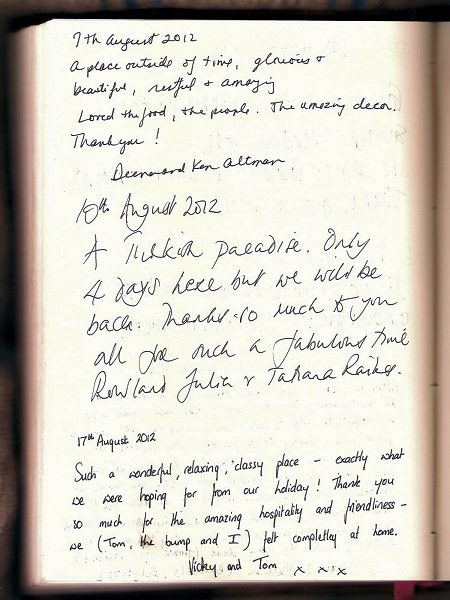 7th August 2012
A place outside of time, glorious +
beautiful, restful + amazing
Loved the food, the people. The amazing decor.
Thank you!
and Ken Altman
10th August 2012
A Turkish paradise. Only
4 days here but we will be
back. Thanks so much to you
all for such a fabulous time
Rowland Julia & Tatiana Raikes.
17th August 2012
Such a wonderful, relaxing, classy place - exactly what
we were hoping for from our holiday! Thank you
so much for the amazing hospitality and friendliness -
we (Tom, the bump and I) felt completley at home.
Vicky and Tom x x x